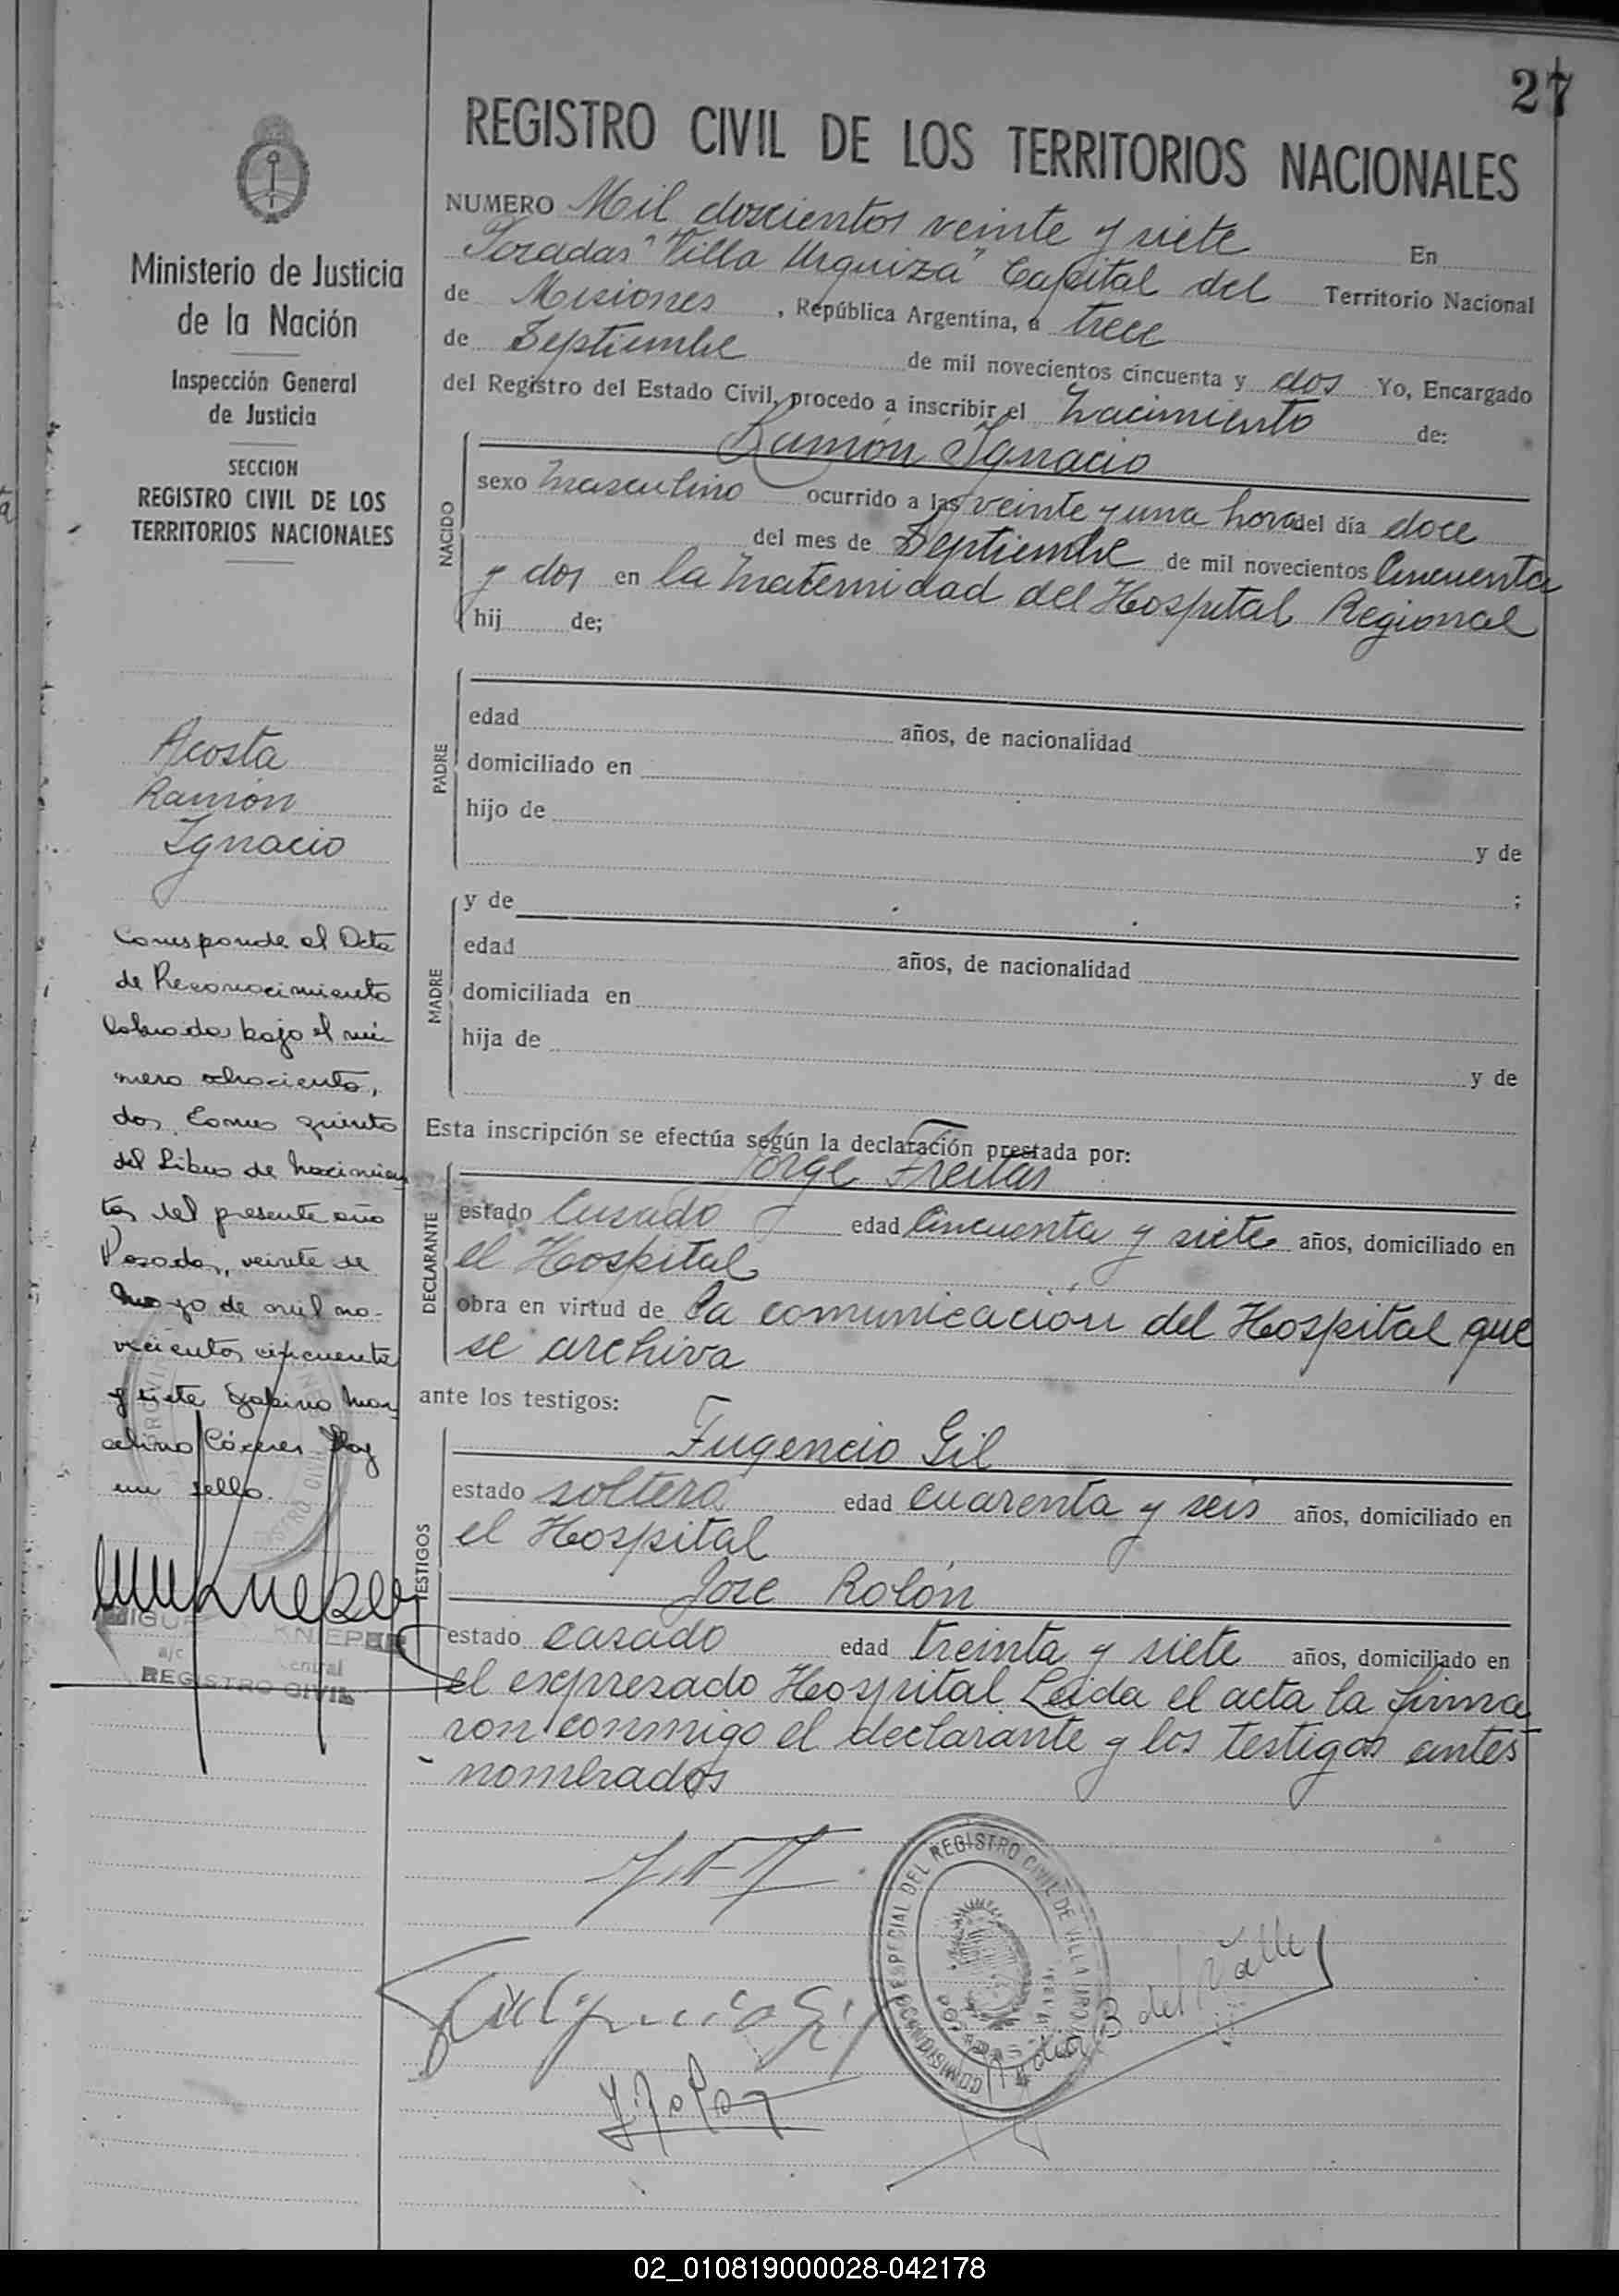 27
REGISTRO CIVIL DE LOS TERRITORIOS NACIONALES
NUMERO Mil doscientos veinte y siete En
Posadas "Villa Urquiza" Capital del Territorio Nacional
de Misiones, República Argentina, a trece
de Septiembre de mil novecientos cincuenta y dos Yo, Encargado
del Registro del Estado Civil, procedo a inscribir el nacimiento de:
Ramón Ignacio
NACIDO
sexo masculino ocurrido a las veinte y una hora del día doce
del mes de Septiembre de mil novecientos Cincuenta
y dos en la Maternidad del Hospital Regional
hij de;
PADRE
edad años, de nacionalidad
domiciliado en
hijo de
y de
;
MADRE
y de
edad años, de nacionalidad
domiciliada en
hija de
y de
Esta inscripción se efectúa según la declaración prestada por:
Jorge Freitas
DECLARANTE
estado Casado edad Cincuenta y siete años, domiciliado en
el Hospital
obra en virtud de la comunicación del Hospital que
se archiva
ante los testigos:
TESTIGOS
Fugencio Gil
estado soltero edad cuarenta y seis años, domiciliado en
el Hospital
Jose Rolón
estado casado edad treinta y siete años, domiciliado en
el expresado Hospital. Leida el acta la firma
ron conmigo el declarante y los testigos antes
nombrados
COMISIONADO ESPECIAL DEL REGISTRO CIVIL DE VILLA URQUIZA
B. del Valle
Ministerio de Justicia
de la Nación
Inspección General
de Justicia
SECCION
REGISTRO CIVIL DE LOS
TERRITORIOS NACIONALES
Acosta
Ramón
Ignacio
Corresponde al Acta
de Reconocimiento
labrada bajo el nú-
mero ochocientos
dos Tomo quinto
del Libro de Nacimien
tos del presente año
Posadas, veinte de
Mayo de mil no-
vecientos cincuenta
y siete Gabino Mar
celino Cáceres Hay
un sello.
KNIEPER
a/c Central
REGISTRO CIVIL
02_010819000028-042178